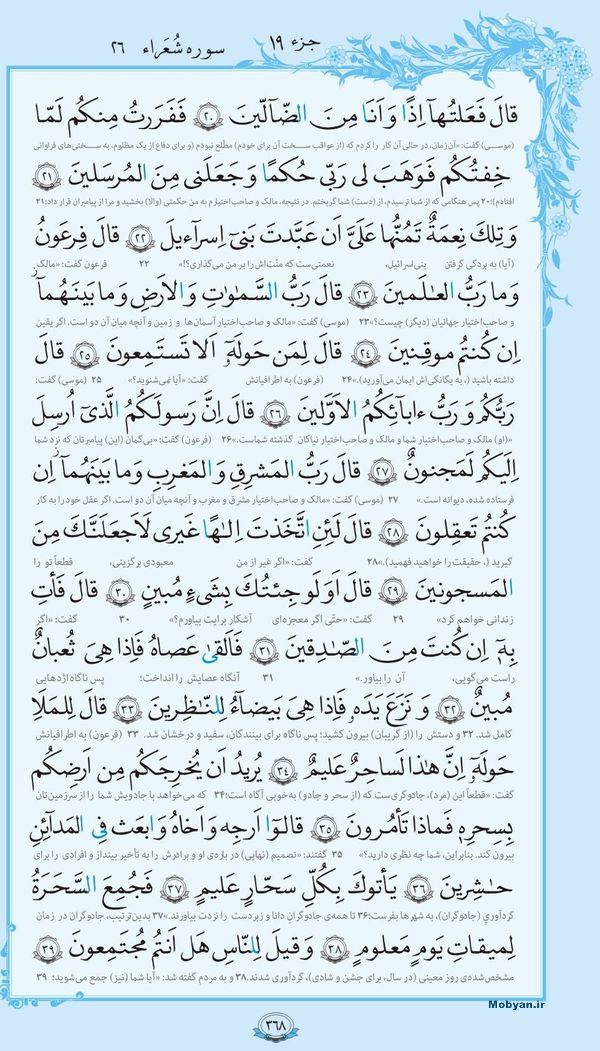 جزء ۱۹
سوره شُعَراء ۲۶
قالَ فَعَلتُهآ اِذًا وَ اَنَا مِنَ الضّآلّينَ ۲۰ فَفَرَرتُ مِنكُم لَمّا
(موسی) گفت: «آن‌زمان، در حالی آن کار را کردم که (از عواقب سخت آن برای خودم) مطّلع نبودم (و برای دفاع از یک مظلوم، به سختی‌های فراوانی
خِفتُكُم فَوَهَبَ لی رَبّی حُكمًا وَ جَعَلَنی مِنَ المُرسَلینَ ۲۱
افتادم)؛ ۲۰ پس هنگامی که از شما ترسیدم، از (دست) شما گریختم. در نتیجه، مالک و صاحب‌اختیارم به من حکمتی (والا) بخشید و مرا از پیامبران قرار داد؛ ۲۱
وَ تِلكَ نِعمَةٌ تَمُنُّها عَلَیَّ اَن عَبَّدتَ بَنی اِسرآءیلَ ۲۲ قالَ فِرعَونُ
(آیا) به بردگی گرفتن بنی‌اسرائیل، نعمتی‌ست که منّت‌اش را بر من می‌گذاری؟!» ۲۲ فرعون گفت: «مالک
وَ ما رَبُّ العالَمینَ ۲۳ قالَ رَبُّ السَّمٰوٰتِ وَ الاَرضِ وَ ما بَینَهُما
و صاحب‌اختیار جهانیان (دیگر) چیست؟» ۲۳ (موسی) گفت: «مالک و صاحب‌اختیار آسمان‌ها و زمین و آنچه میان آن دو است. اگر یقین
اِن كُنتُم موقِنینَ ۲۴ قالَ لِمَن حَولَهٗ اَلا تَستَمِعونَ ۲۵ قالَ
داشته باشید (، به یگانگی‌اش ایمان می‌آورید).» ۲۴ (فرعون) به اطرافیانش گفت: «آیا نمی‌شنوید؟» ۲۵ (موسی) گفت:
رَبُّكُم وَ رَبُّ ءابآئِكُمُ الاَوَّلینَ ۲۶ قالَ اِنَّ رَسولَكُمُ الَّذی اُرسِلَ
«(او) مالک و صاحب‌اختیار شما و مالک و صاحب‌اختیار نیاکان گذشته شماست.» ۲۶ (فرعون) گفت: «بی‌گمان (این) پیامبرتان که نزد شما
اِلَیكُم لَمَجنونٌ ۲۷ قالَ رَبُّ المَشرِقِ وَ المَغرِبِ وَ ما بَینَهُمآ اِن
فرستاده شده، دیوانه است.» ۲۷ (موسی) گفت: «مالک و صاحب‌اختیار مشرق و مغرب و آنچه میان آن دو است. اگر عقل خود را به کار
كُنتُم تَعقِلونَ ۲۸ قالَ لَئِنِ اتَّخَذتَ اِلٰهًا غَیری لَاَجعَلَنَّكَ مِنَ
گیرید (، حقیقت را خواهید فهمید).» ۲۸ گفت: «اگر غیر از من معبودی برگزینی، قطعاً تو را
المَسجونینَ ۲۹ قالَ اَوَلَو جِئتُكَ بِشَیءٍ مُبینٍ ۳۰ قالَ فَأتِ
زندانی خواهم کرد» ۲۹ گفت: «حتّی اگر معجزه‌ای آشکار برایت بیاورم؟» ۳۰ گفت: «اگر
بِهٖ اِن كُنتَ مِنَ الصّادِقینَ ۳۱ فَاَلقیٰ عَصاهُ فَاِذا هِیَ ثُعبانٌ
راست می‌گویی، آن را بیاور.» ۳۱ آنگاه عصایش را انداخت؛ پس ناگاه اژدهایی
مُبینٌ ۳۲ وَ نَزَعَ یَدَهٗ فَاِذا هِیَ بَیضآءُ لِلنّاظِرینَ ۳۳ قالَ لِلمَلَاِ
کامل شد. ۳۲ و دستش را (از گریبان) بیرون کشید؛ پس ناگاه برای بینندگان، سفید و درخشان شد. ۳۳ (فرعون) به اطرافیانش
حَولَهٗ اِنَّ هٰذا لَساحِرٌ عَلیمٌ ۳۴ یُریدُ اَن یُخرِجَكُم مِن اَرضِكُم
گفت: «قطعاً این (مرد)، جادوگری‌ست که (از سحر و جادو) به‌خوبی آگاه است؛ ۳۴ که می‌خواهد با جادویش شما را از سرزمین‌تان
بِسِحرِهٖ فَماذا تَأمُرونَ ۳۵ قالوٓا اَرجِه وَ اَخاهُ وَ ابعَث فِی المَدآئِنِ
بیرون کند. بنابراین، شما چه نظری دارید؟» ۳۵ گفتند: «تصمیم (نهایی) درباره‌ی او و برادرش را به تأخیر بینداز و افرادی را برای
حاشِرینَ ۳۶ یَأتوكَ بِكُلِّ سَحّارٍ عَلیمٍ ۳۷ فَجُمِعَ السَّحَرَةُ
گردآوری (جادوگران)، به شهرها بفرست؛ ۳۶ تا همه‌ی جادوگرانِ دانا و زبردست را نزدت بیاورند.» ۳۷ بدین‌ترتیب، جادوگران در زمان
لِمیقاتِ یَومٍ مَعلومٍ ۳۸ وَ قیلَ لِلنّاسِ هَل اَنتُم مُجتَمِعونَ ۳۹
مشخص‌شده‌ی روز معینی (در سال، برای جشن و شادی)، گردآوری شدند. ۳۸ و به مردم گفته شد: «آیا شما (نیز) جمع می‌شوید؛ ۳۹
۳۶۸
Mobyan.ir